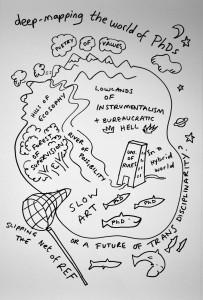 deep-mapping the world of PhDs
POETRY OF VALUES
HILLS OF ECOSOPHY
LOWLANDS
OF
INSTRUMENTALISM
+ BUREAUCRATIC
HELL
FOREST
OF
SUPERVISION
RIVER OF POSSIBILITY
UNI.
OF
RUINS
In a
Hybrid
world
SLOW
ART
PhD
PhD
PhD
SLIPPING
THE Net of REF
OR A FUTURE OF TRANSDISCIPLINARITY?